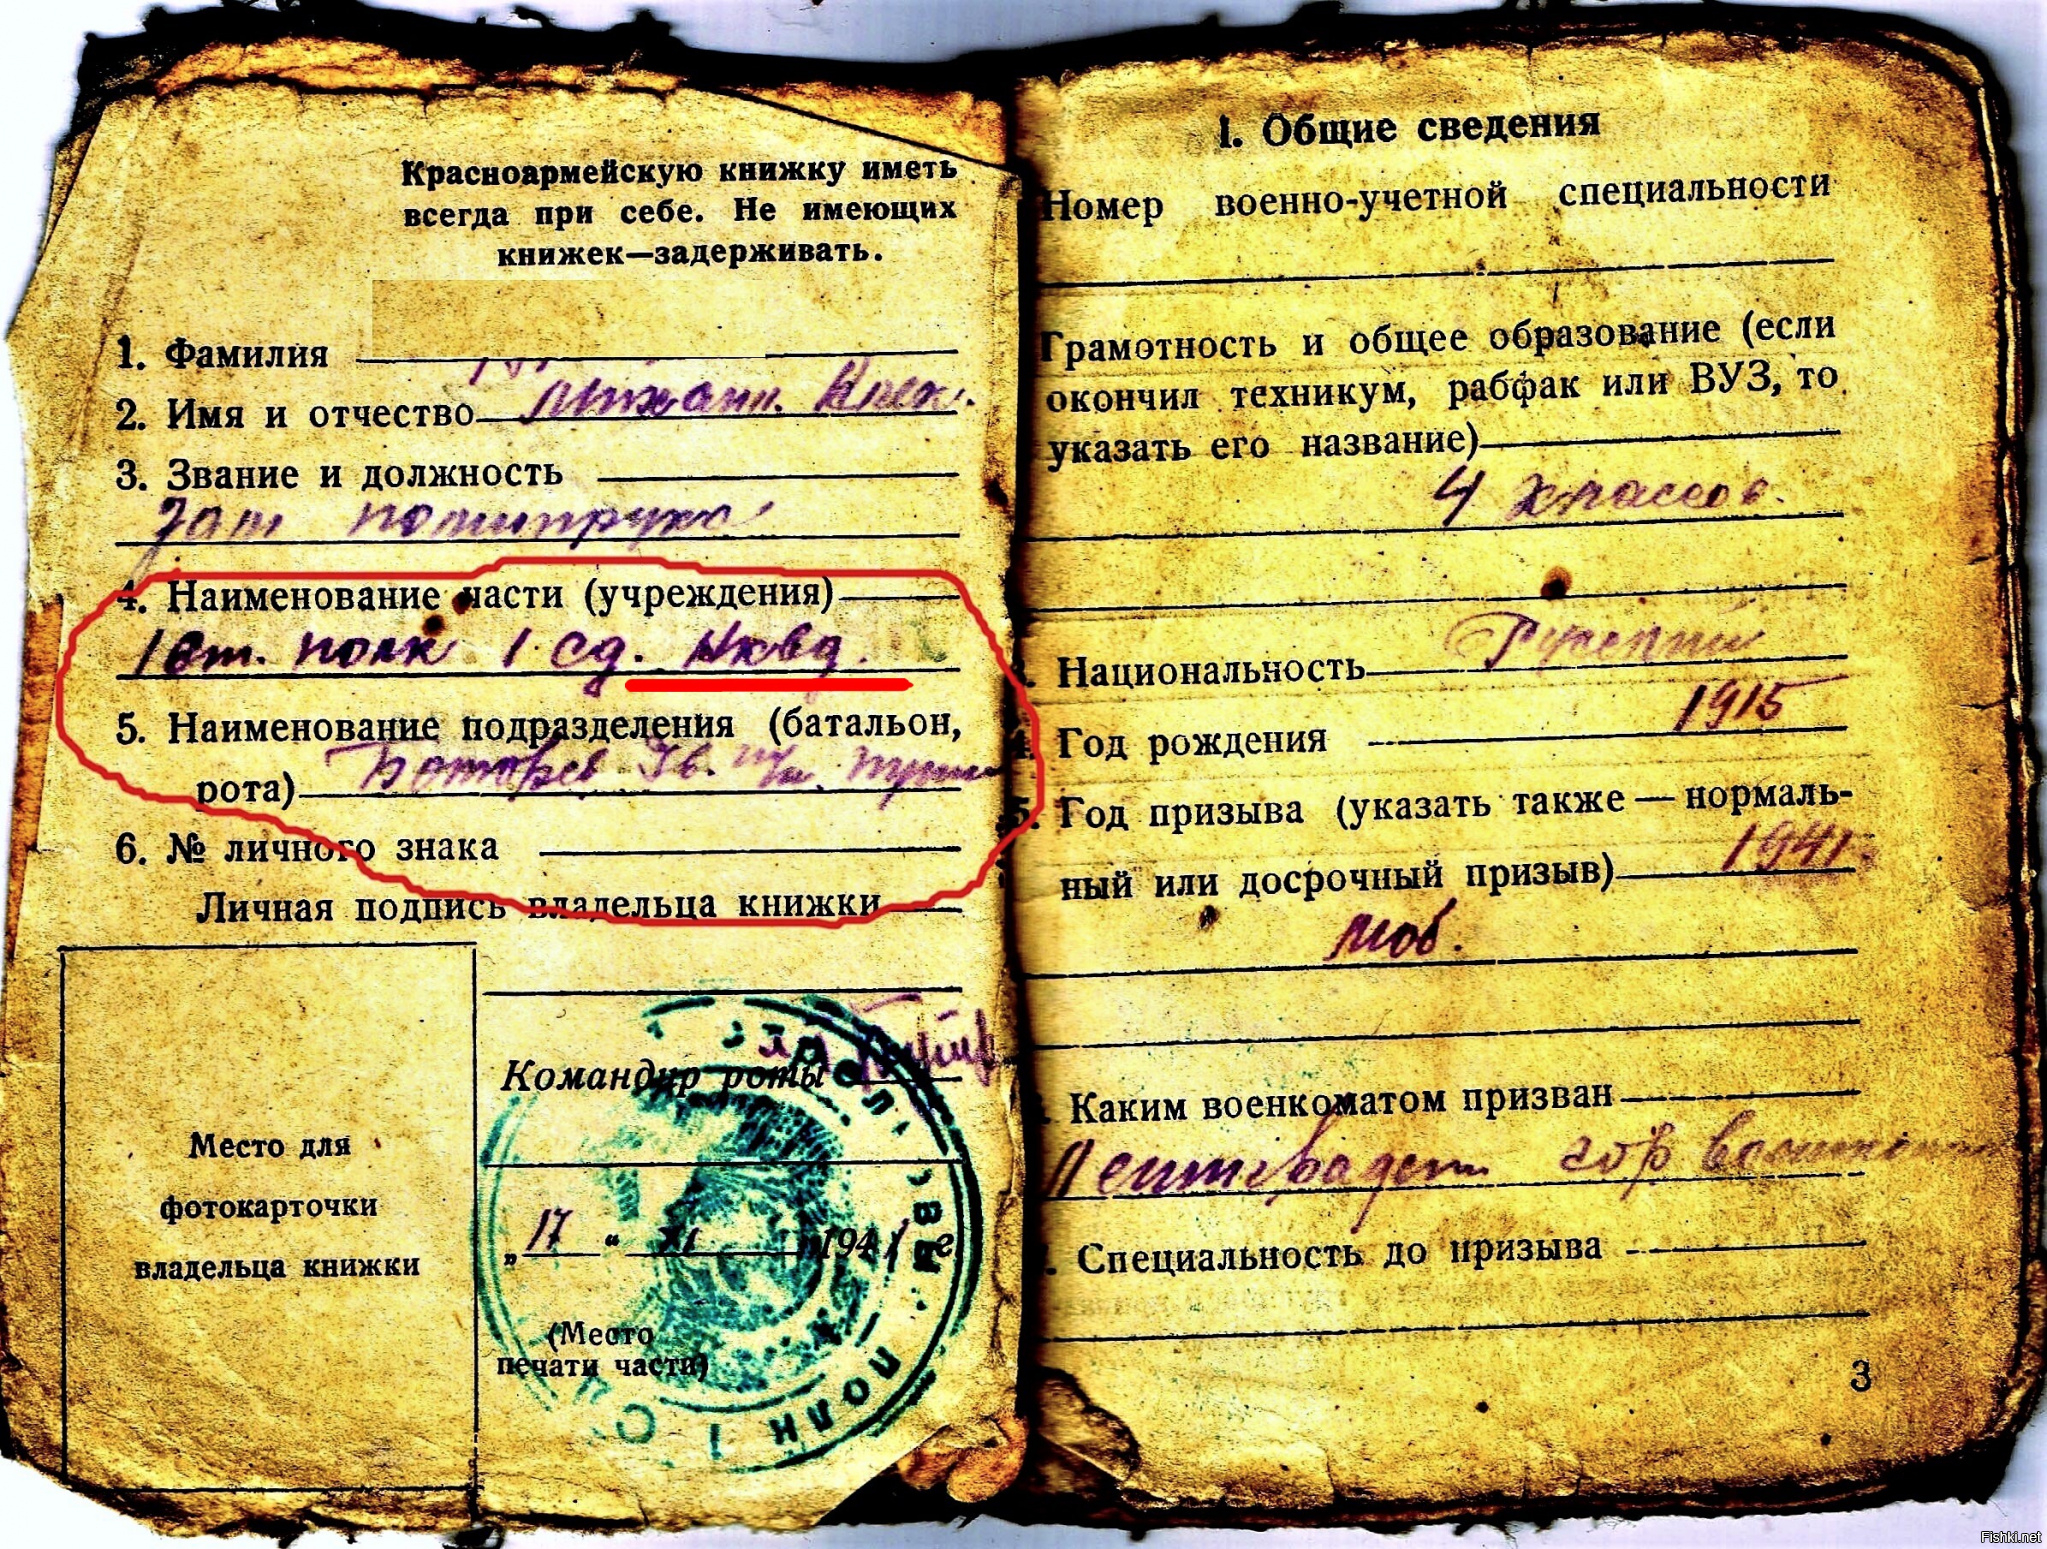 Красноармейскую книжку иметь
всегда при себе. Не имеющих
книжек—задерживать.
1. Фамилия
2. Имя и отчество Михаил Алек.
3. Звание и должность
Зам политрука
4. Наименование части (учреждения)
1 ст. полк 1 сд. Нквд.
5. Наименование подразделения (батальон,
рота)
6. № личного знака
Личная подпись владельца книжки
Место для
фотокарточки
владельца книжки
Командир роты
„17“ XI 1941 г.
(Место
печати части)
I. Общие сведения
Номер военно-учетной специальности
Грамотность и общее образование (если
окончил техникум, рабфак или ВУЗ, то
указать его название)
4 классов.
Национальность Русский
Год рождения 1915
5. Год призыва (указать также — нормаль-
ный или досрочный призыв) 1941
моб.
Каким военкоматом призван
Ленинградским гор
Специальность до призыва
3
ПОЛК 1 С
Fishki.net